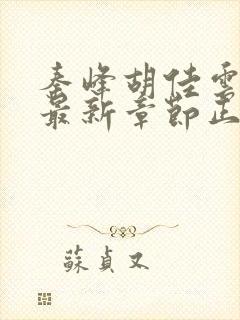 秦峰胡佳雲
最新章節正
蘇貞又